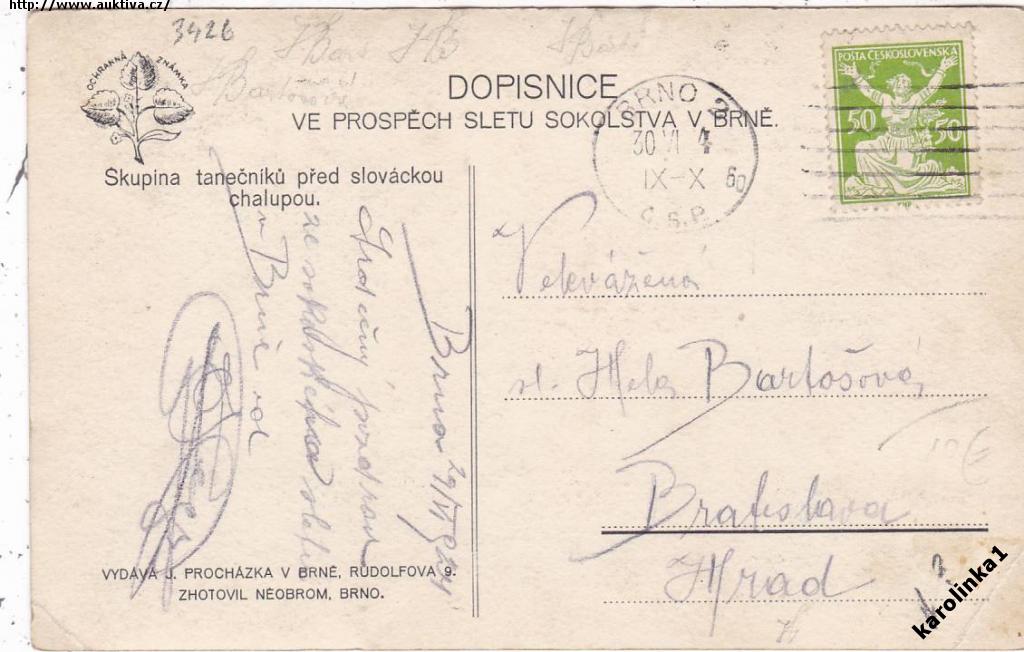 http://www.auktiva.cz/
3426
OCHRANNÁ ZNÁMKA
DOPISNICE
VE PROSPĚCH SLETU SOKOLSTVA V BRNĚ.
Skupina tanečníků před slováckou
chalupou.
BRNO 2
30 VI 4
IX-X 60
Č.S.P.
POŠTA ČESKOSLOVENSKÁ
50 50
Brno 29/VI 924
Srdečný pozdrav
ze sokolského sletu
v Brně od
Velevážená
sl. Hela Bartošová
Bratislava
Hrad
10€
VYDÁVÁ J. PROCHÁZKA V BRNĚ, RUDOLFOVA 9.
ZHOTOVIL NEOBROM, BRNO.
karolinka1